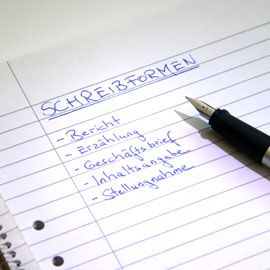 SCHREIBFORMEN
- Bericht
- Erzählung
- Geschäftsbrief
- Inhaltsangabe
- Stellungnahme